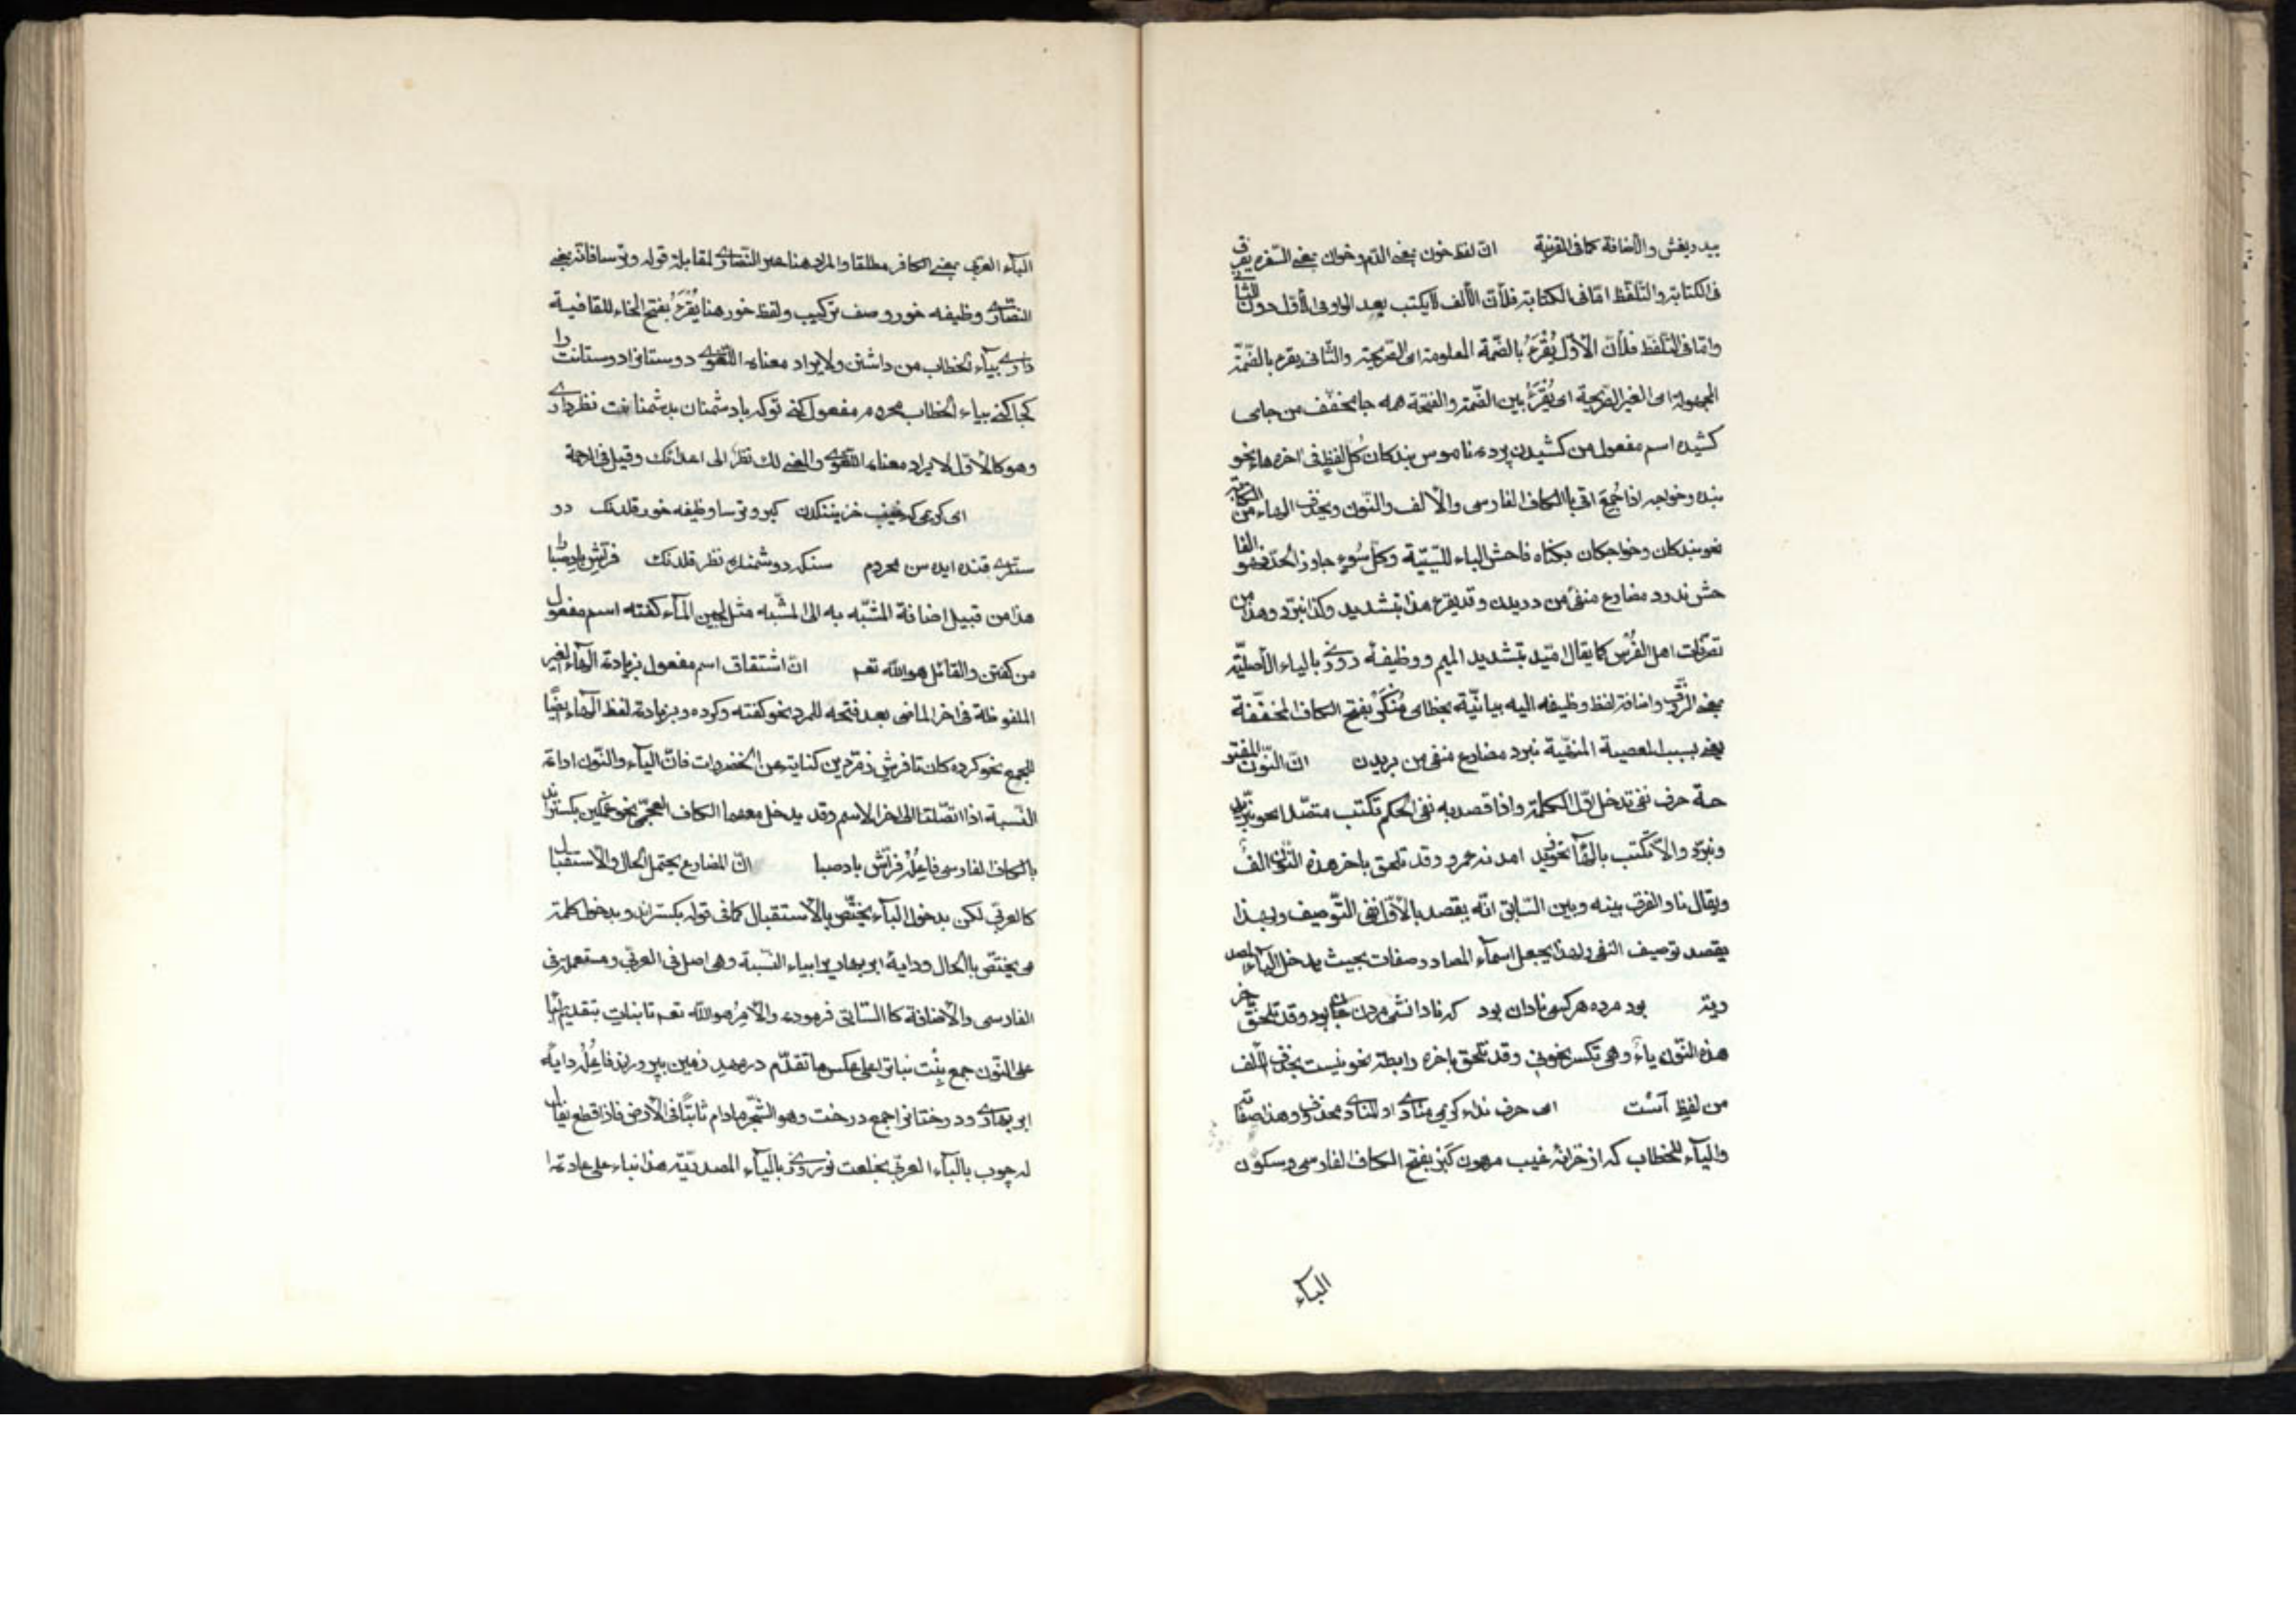 بيدريغش والأضافة كما فى القرنية انّ لفظ خون بمعنى الدّم وخوان بمعنى السّفره يفرق
فى الكتابة والتّلفّظ امّا فى الكتابة فلأنّ الألف لا يكتب بعد الواو فى الأوّل دون الثّانى
وامّا فى التّلفّظ فلأنّ الأوّل يُقْرَءُ بالضّمّة المعلومة اى الصّريحة والثّانى يقرء بالضّمّة
المجهولة اى الغير الصّريحة اى يُقْرَءُ بين الضّمّة والفتحة همه جا مخفّف من جاى
كشيده اسم مفعول من كشيدن پرده ناموس بندكان كُلّ لفظٍ فى اخره هاء نحو
بنده وخواجه اذا جُمِعَ اتى بالكاف الفارسى والألف والنّون ويحذف الهاء من الكتابة
نحو بندكان وخواجكان بكناه فاحش الباء للسّببيّة وكلّ سُوءٍ جاوز الحدّ فهو الفا
حش ندرد مضارع منفى من دريدن وقد يقرء هذا بتشديد وكذا نبرّد وهذا من
تصرّفات اهل الفُرْس كما يقال امّيد بتشديد الميم ووظيفۀ روزى بالياء الأصليّة
بمعنى الرّزق واضافة لفظ وظيفه اليه بيانيّة بخطاى مُنْكَرْ بفتح الكاف المخفّفة
يعنى بسبب المعصية المنفيّة نبرد مضارع منفى من بريدن انّ النّون المفتو
حة حرف نفى تدخل اوّل الكلمة واذا قصد به نفى الحكم تكتب متّصلا نحو ندرد
ونبرّد والّا تكتب بالهاء نحو نه زيد امد نه عمرو وقد تلحق باخر هذه النّون الفٌ
ويقال نا والفرق بينه وبين السّابق انّه يقصد بالأوّل نفى التّوصيف وبهذا
يقصد توصيف النفى ولهذا يجعل اسماء المصادر صفات بحيث يدخل الياء المصد
ريّة بود مرده هر كسى نادان بود كه نادانشى مردن جان بود وقد تلحق باخر
هذه النّون ياءٌ وهى تكسر نحو نى وقد تلحق باخره رابطة نحو نيست بحذف الألف
من لفظِ اَسْت اى حرف نداء كريمى منادى او المنادى محذوف وهذا صفاته
والياء للخطاب كه از خزانۀ غيب مرهون كَبْر بفتح الكاف الفارسى وسكون
الباء
الباء العربى بمعنى الكافر مطلقا والمراد هنا غير النّصارى لمقابلة قوله وترسا فانّه بمعنى
النّصارى وظيفه خور وصف تركيبى ولفظ خور هنا يُقْرَءُ بفتح الخاء للقافية
دارى بياء الخطاب من داشتن ولا يراد معناه اللّغوى دوستانرا دوستانت را
كجا كنى بياء الخطاب محروم مفعول كنى تو كه با دشمنان بدشمنانت نظر دارى
وهو كالأوّل لا يراد معناه اللّغوى والمعنى لك نظرٌ الى اعدائك وقيل فى الترجمة
اى كريمى كه غيب خزينندن كبر وترسا وظيفه خور قلدنك دو
ستلرى قنده ايده سن محروم سنكه دوشمنلره نظر قلدنك فرّاشِ بادِ صبا را
هذا من قبيل اضافة المشبّه به الى المشبّه مثل لجين الماء كفته اسم مفعول
من كفتن والقائل هو الله تعم انّ اشتقاق اسم مفعول بزيادة الهاء الغير
الملفوظة فى اخر الماضى بعد فتحه للمفرد نحو كفته وكرده وبزيادة لفظ الهاء ايضًا
للجمع نحو كرده كان تا فرشِ زمرّدين كناية عن الخضروات فانّ الياء والنّون اداة
النّسبة اذا اتّصلتا الى اخر الاسم وقد يدخل معهما الكاف العجمى نحو غمكين بكستراند
بالكاف الفارسى فاعِلُهُ فرّاش باد صبا انّ المضارع يحتمل الحال والأستقبال
كالعربى لكن بدخول الباء يختصّ بالأستقبال كما فى قوله بكستراند وبدخول كلمة
مى يختصّ بالحال ودايۀ ابر بهارى را بياء النّسبة وهى اصل فى العربى ومستعمل فى
الفارسى والأضافة كا السّابق فرموده والآمِرُ هو الله تعم تا بناتِ بتقديم الباء
على النّون جمع بِنْت نباترا على عكس ما تقدّم در مهدِ زمين بپروراند فاعِلُهُ دايۀ
ابر بهارى ودرختانرا جمع درخت وهو الشّجر مادام ثابتًا فى الأرض فاذا قطع يقال
له چوب بالباء العربى بخلعت نوروزى بالياء المصدريّة هذا بناء على عادة ا